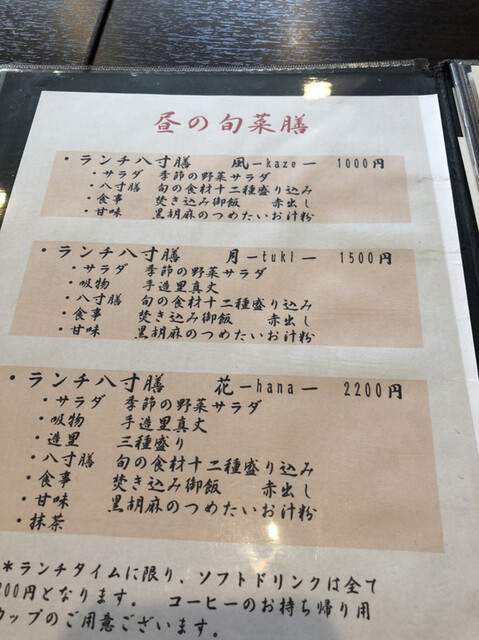 昼の旬菜膳
・ランチ八寸膳 風ーkazeー 1000円
・サラダ 季節の野菜サラダ
・八寸膳 旬の食材十二種盛り込み
・食事 焚き込み御飯 赤出し
・甘味 黒胡麻のつめたいお汁粉
・ランチ八寸膳 月ーtukiー 1500円
・サラダ 季節の野菜サラダ
・吸物 手造里真丈
・八寸膳 旬の食材十二種盛り込み
・食事 焚き込み御飯 赤出し
・甘味 黒胡麻のつめたいお汁粉
・ランチ八寸膳 花ーhanaー 2200円
・サラダ 季節の野菜サラダ
・吸物 手造里真丈
・造里 三種盛り
・八寸膳 旬の食材十二種盛り込み
・食事 焚き込み御飯 赤出し
・甘味 黒胡麻のつめたいお汁粉
・抹茶
*ランチタイムに限り、ソフトドリンクは全て
00円となります。 コーヒーのお持ち帰り用
カップのご用意ございます。